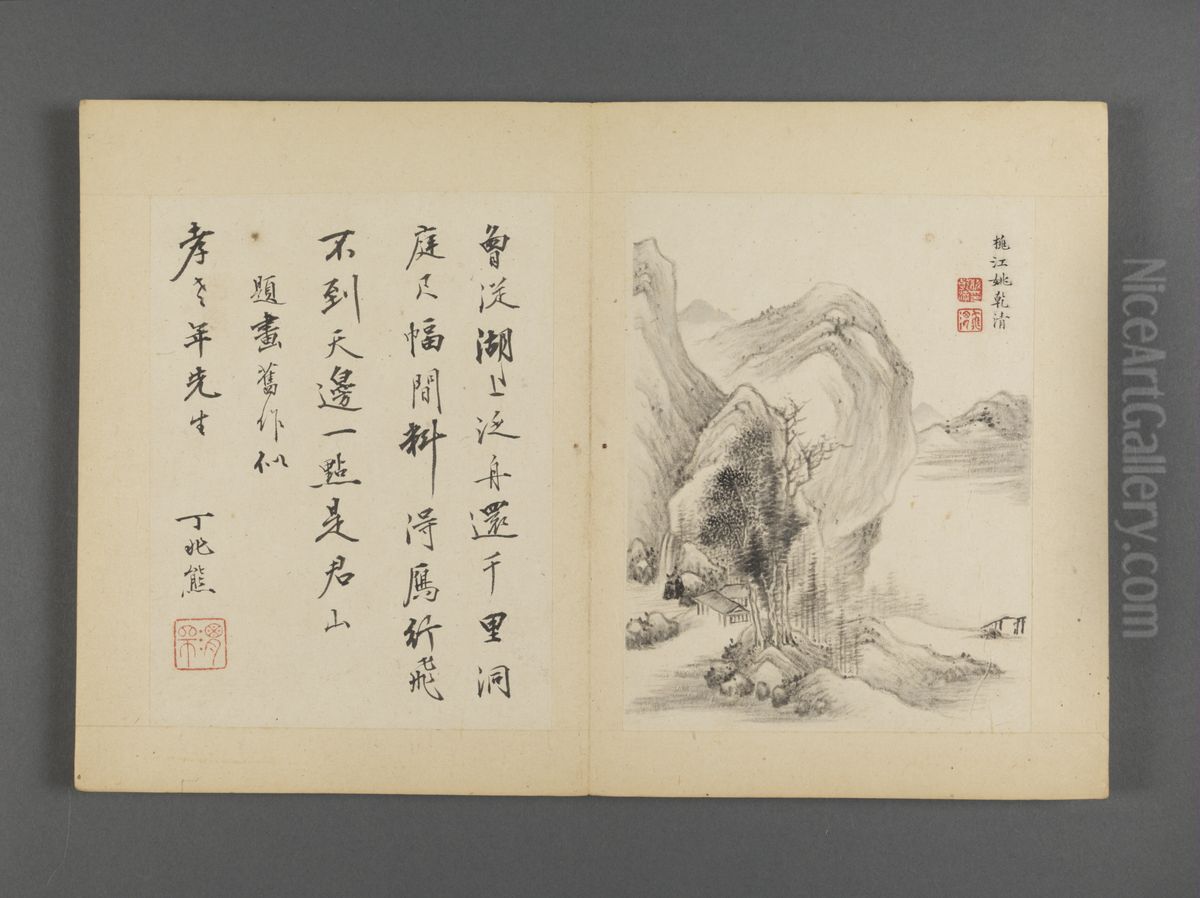 桃江姚乾清
曾從湖上泛舟還千里洞
庭尺幅間料得鴈行飛
不到天邊一點是君山
題畫舊作似
孝老年先生
丁兆熊
NiceArtGallery.com